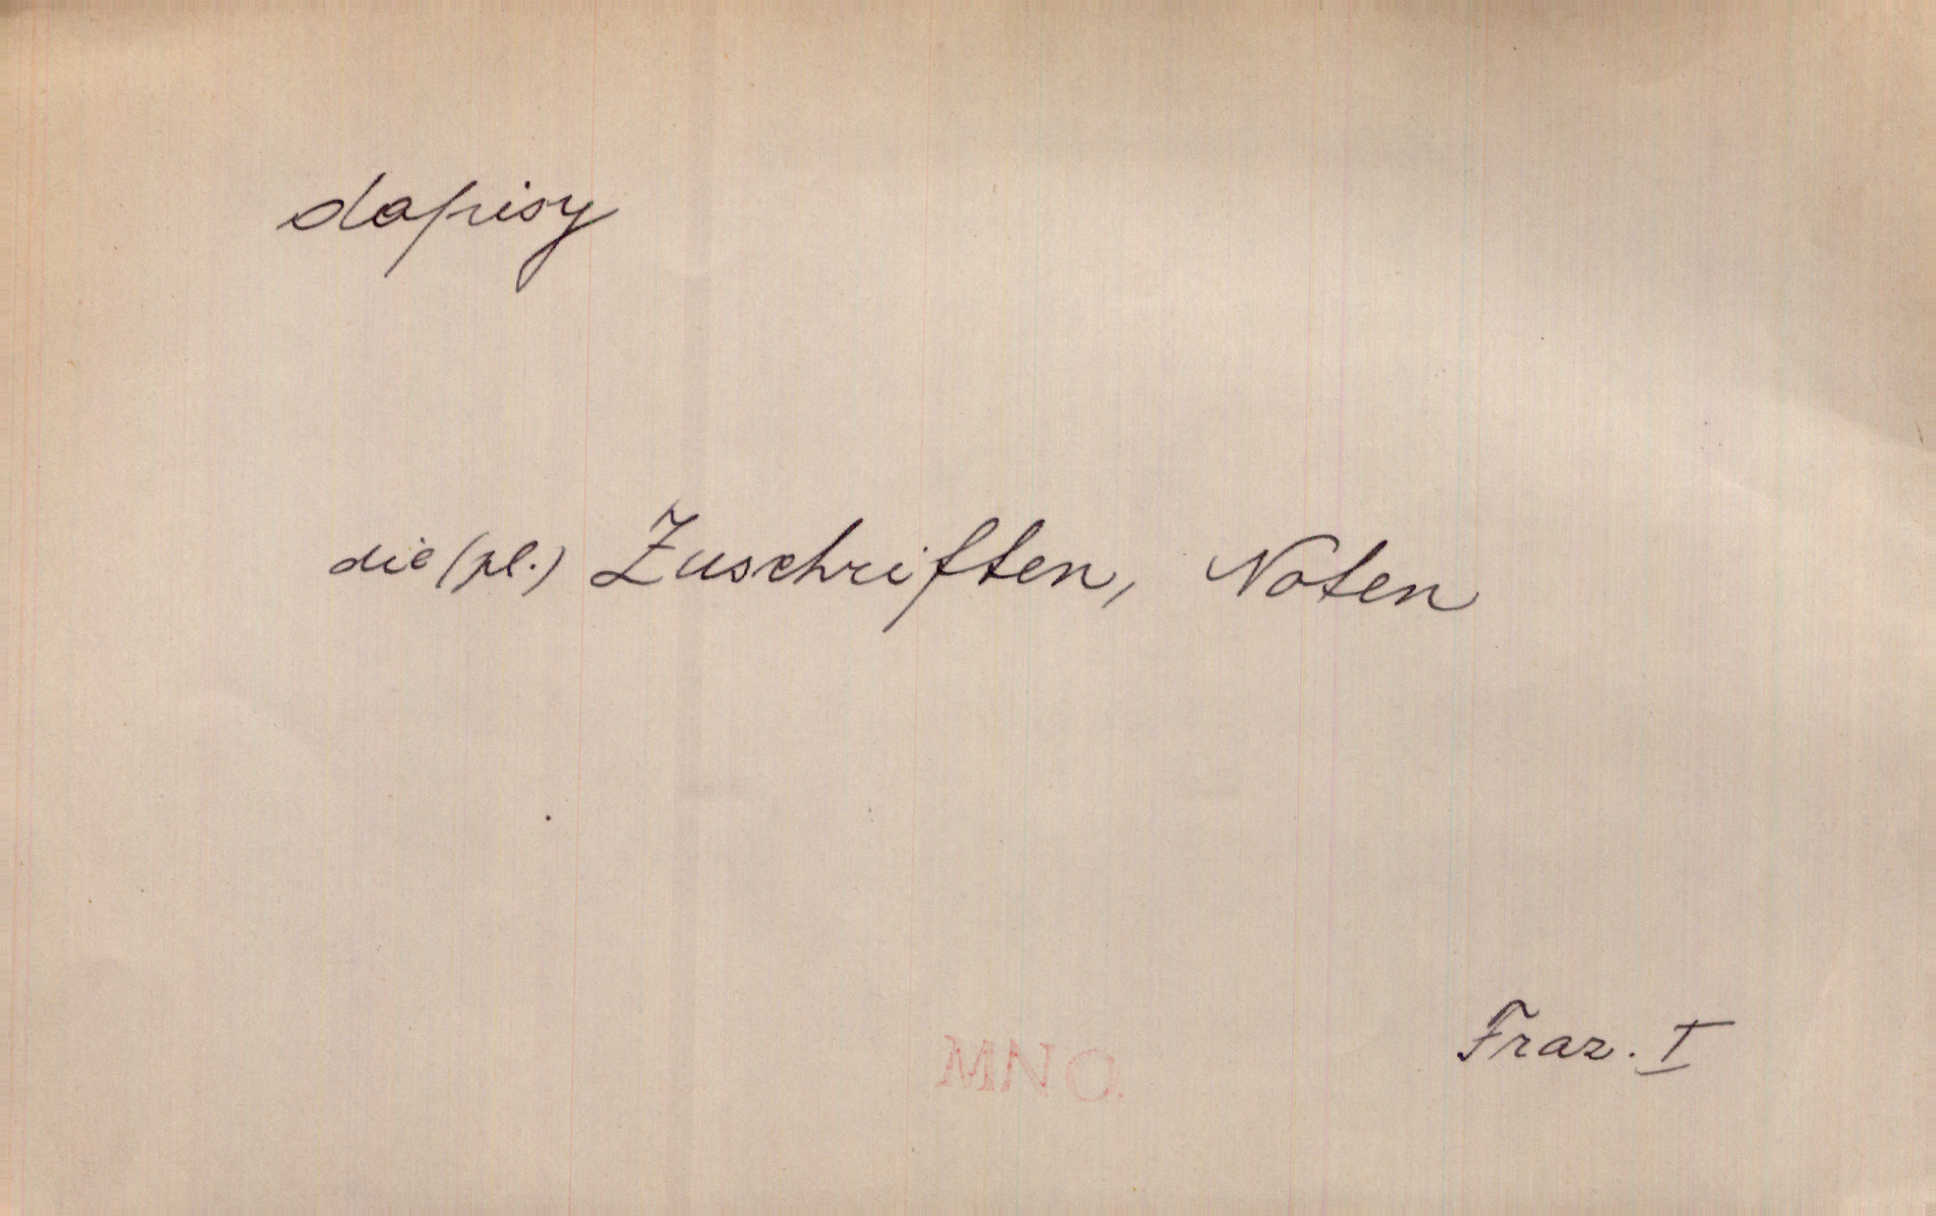 dopisy
die (pl.) Zuschriften, Noten
Fraz. I
MNO.